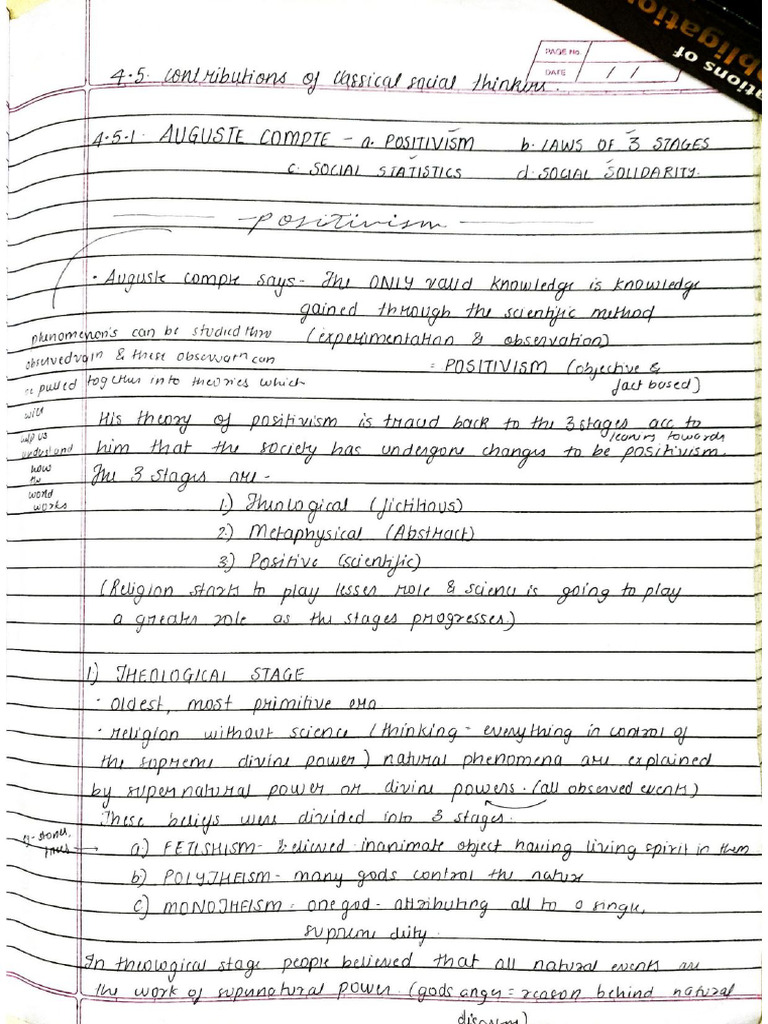 ations of
obligation
PAGE No.
DATE / /
4.5. Contributions of classical social thinkers.
4.5.1. AUGUSTE COMPTE - a. POSITIVISM b. LAWS OF 3 STAGES
c. SOCIAL STATISTICS d. SOCIAL SOLIDARITY.
positivism
· Auguste compte says - The ONLY valid knowledge is knowledge
gained through the scientific method
(experimentation & observation)
= POSITIVISM (objective &
fact based)
phenomenon's can be studied thru
observation & these observatn can
be pulled together into theories which
will
help us
understand
how
the
world
works
His theory of positivism is traced back to the 3 stages acc to
leaning towards
him that the society has undergone changes to be positivism.
The 3 stages are -
1.) Theological (fictitious)
2.) Metaphysical (Abstract)
3) Positive (scientific)
(Religion starts to play lesser role & science is going to play
a greater role as the stages progresses.)
1) THEOLOGICAL STAGE
· oldest, most primitive era
· religion without science (thinking - everything in control of
the supreme divine power) natural phenomena are explained
by supernatural power or divine powers. (all observed events)
These beliefs were divided into 3 stages.
eg- stones,
trees
a) FETISHISM - Believed inanimate object having living spirit in them
b) POLYTHEISM - many gods control the nature
c) MONOTHEISM = one god - attributing all to a single,
supreme deity.
In theological stage people believed that all natural events are
the work of supernatural power. (gods anger = reason behind natural
disasters)